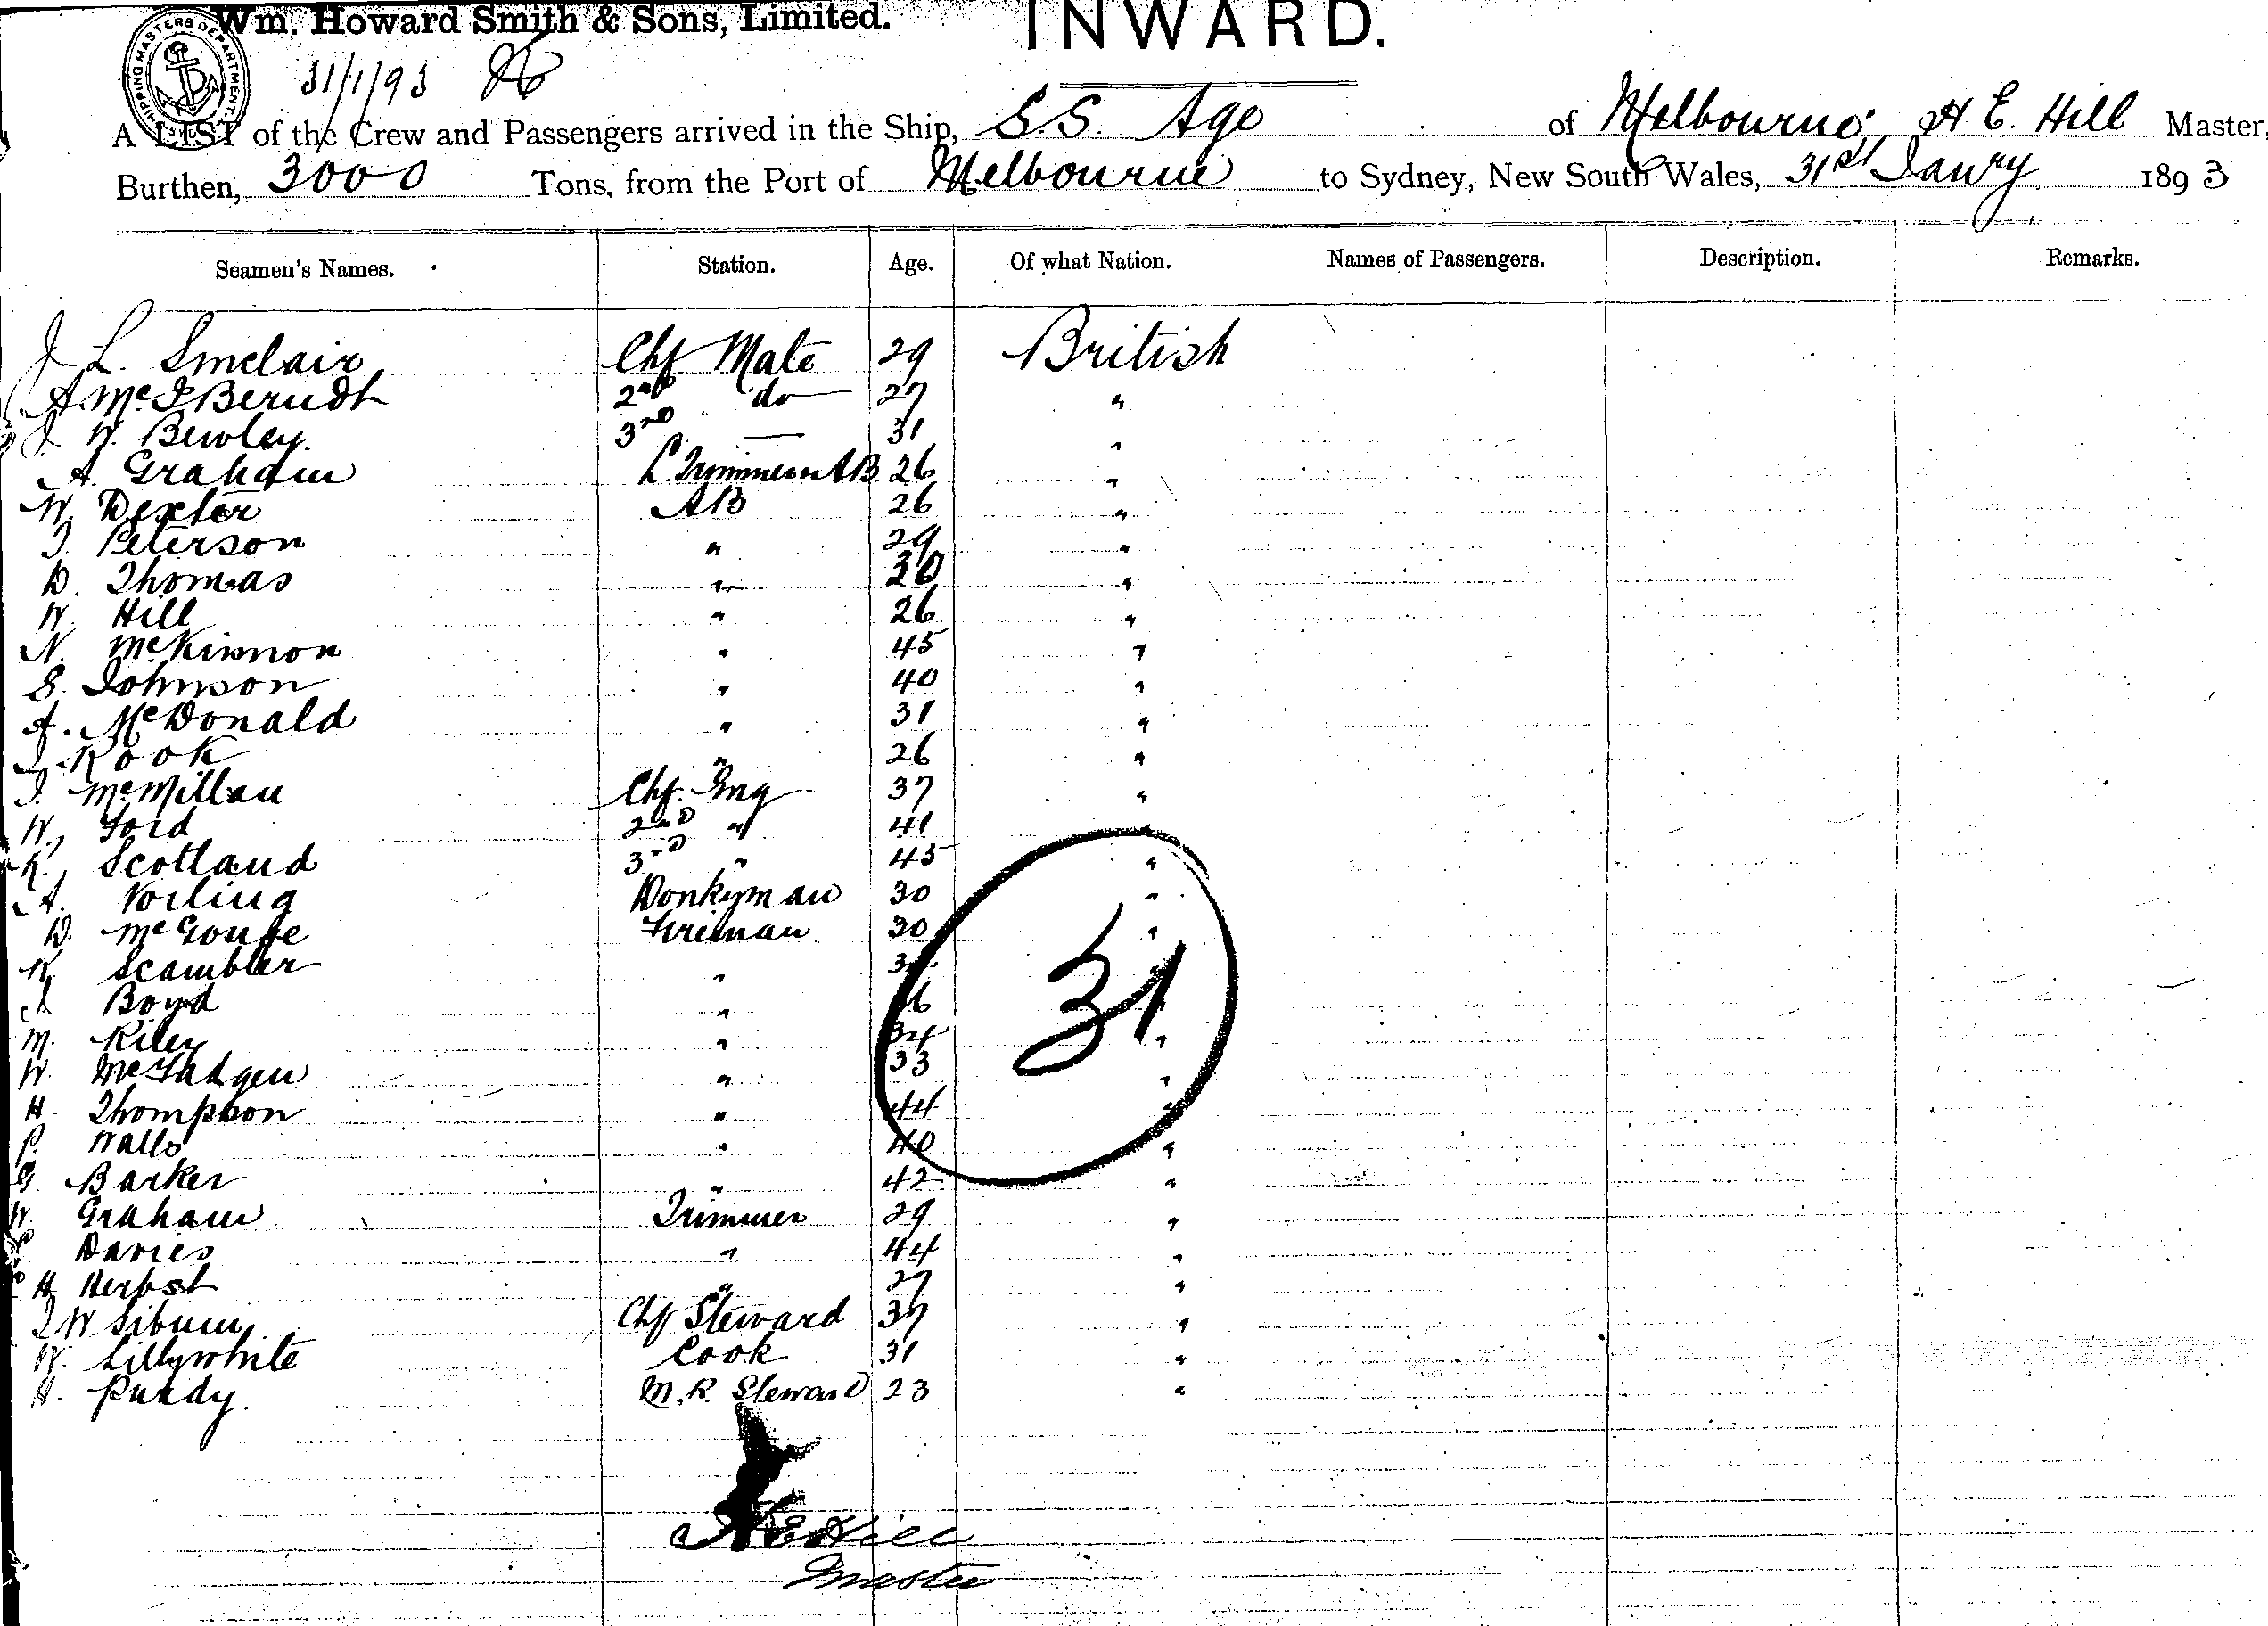 Wm. Howard Smith & Sons, Limited.
INWARD.
SHIPPING MASTERS DEPARTMENT
31/1/93
A LIST of the Crew and Passengers arrived in the Ship, S.S. Age of Melbourne, H. E. Hill Master,
Burthen, 3000 Tons, from the Port of Melbourne to Sydney, New South Wales, 31st Jany 1893
Seamen's Names. Station. Age. Of what Nation. Names of Passengers. Description. Remarks.
J L. Sinclair Chf Mate 29 British
A. McI Berndt 2nd do 27 "
J. W. Bewley. 3rd — 31 "
A. Graham AB 26 "
W. Dexter AB 26 "
J. Peterson " 29 "
D. Thomas " 30 "
W. Hill " 26 "
N. McKinnon " 45 "
S. Johnson " 40 "
A. McDonald " 31 "
J. Rook " 26 "
J. McMillan Chf. Eng 37 "
W. Ford 2nd " 41 "
R. Scotland 3rd " 45 "
A. Vorling Donkyman 30 "
D. Fireman 30 "
R. Scambler " "
J. Boyd " "
M. Riley " 34 "
W. McFadgen " 33 "
H. Thompson " 44 "
P. Walls " 40 "
G. Barker " 42 "
W. Graham Trimmer 29 "
Davies " 44 "
H. Herbst " 27 "
J W Sibum Chf Steward 37 "
W. Lillywhite Cook 31 "
H. Purdy. M.R. Steward 23 "
31
H E Hill
Master